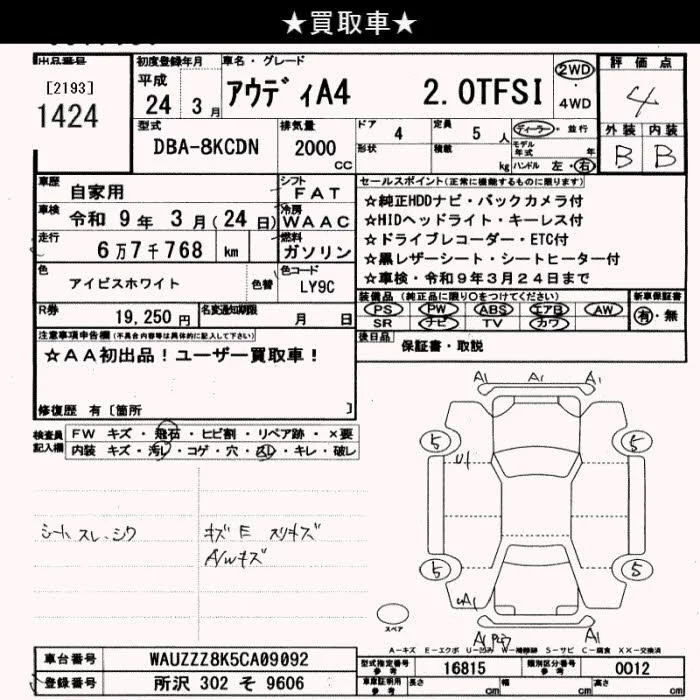 ★買取車★
出品番号
[2193]
1424
初度登録年月
平成
24 3月
車名・グレード
アウディA4 2.0TFSI
2WD
・
4WD
評価点
4
外装 内装
B B
型式
DBA-8KCDN
排気量
2000
CC
ドア 4
定員 5 人
形状
積載 kg
ディーラー・並行
モデル年式 年
ハンドル 左・右
車歴 自家用
シフト FAT
車検 令和 9年 3月(24日)
冷房 WAAC
走行 6万7千768 km
燃料 ガソリン
色 アイビスホワイト 色替
色コード LY9C
R券 19,250円
名変通知期限 月 日
セールスポイント(正常に機能するものに限ります)
☆純正HDDナビ・バックカメラ付
☆HIDヘッドライト・キーレス付
☆ドライブレコーダー・ETC付
☆黒レザーシート・シートヒーター付
☆車検・令和9年3月24日まで
装備品(純正品に限り○をつけてください)
PS PW ABS エアB AW
SR ナビ TV カワ
新車保証書
有・無
後日品 保証書・取説
注意事項申告欄(不具合内容等は具体的に記入して下さい)
☆AA初出品!ユーザー買取車!
修復歴 有〔箇所 〕
検査員記入欄
FW キズ・飛石・ヒビ割・リペア跡・×要
内装 キズ・汚レ・コゲ・穴・スレ・キレ・破レ
シート スレ、シワ
キズE スリキズ
A/Wキズ
A1 A1 A1
5 5
U1
5 5
A1
A1
スペア
A-キズ E-エクボ U-凹み W-補修跡 S-サビ C-腐食 XX-交換済
車台番号 WAUZZZ8K5CA09092
登録番号 所沢 302 そ 9606
型式指定番号 参考 16815
類別区分番号 参考 0012
車庫証明用 参考 長さ cm 幅 cm 高さ cm